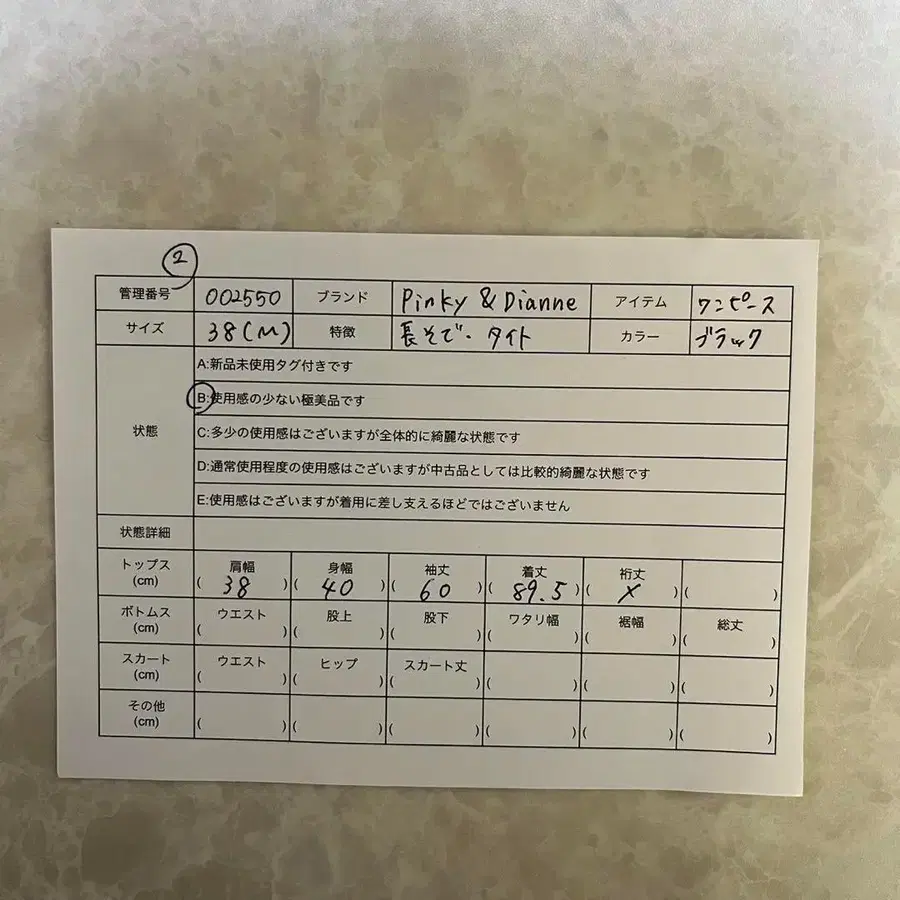 2
管理番号 002550 ブランド Pinky & Dianne アイテム ワンピース
サイズ 38(M) 特徴 長そで・タイト カラー ブラック
状態
A:新品未使用タグ付きです
B:使用感の少ない極美品です
C:多少の使用感はございますが全体的に綺麗な状態です
D:通常使用程度の使用感はございますが中古品としては比較的綺麗な状態です
E:使用感はございますが着用に差し支えるほどではございません
状態詳細
トップス 肩幅 身幅 袖丈 着丈 裄丈
(cm) ( 38 ) ( 40 ) ( 60 ) ( 89.5 ) ( x ) ( )
ボトムス ウエスト 股上 股下 ワタリ幅 裾幅 総丈
(cm) ( ) ( ) ( ) ( ) ( ) ( )
スカート ウエスト ヒップ スカート丈
(cm) ( ) ( ) ( ) ( ) ( ) ( )
その他
(cm) ( ) ( ) ( ) ( ) ( ) ( )